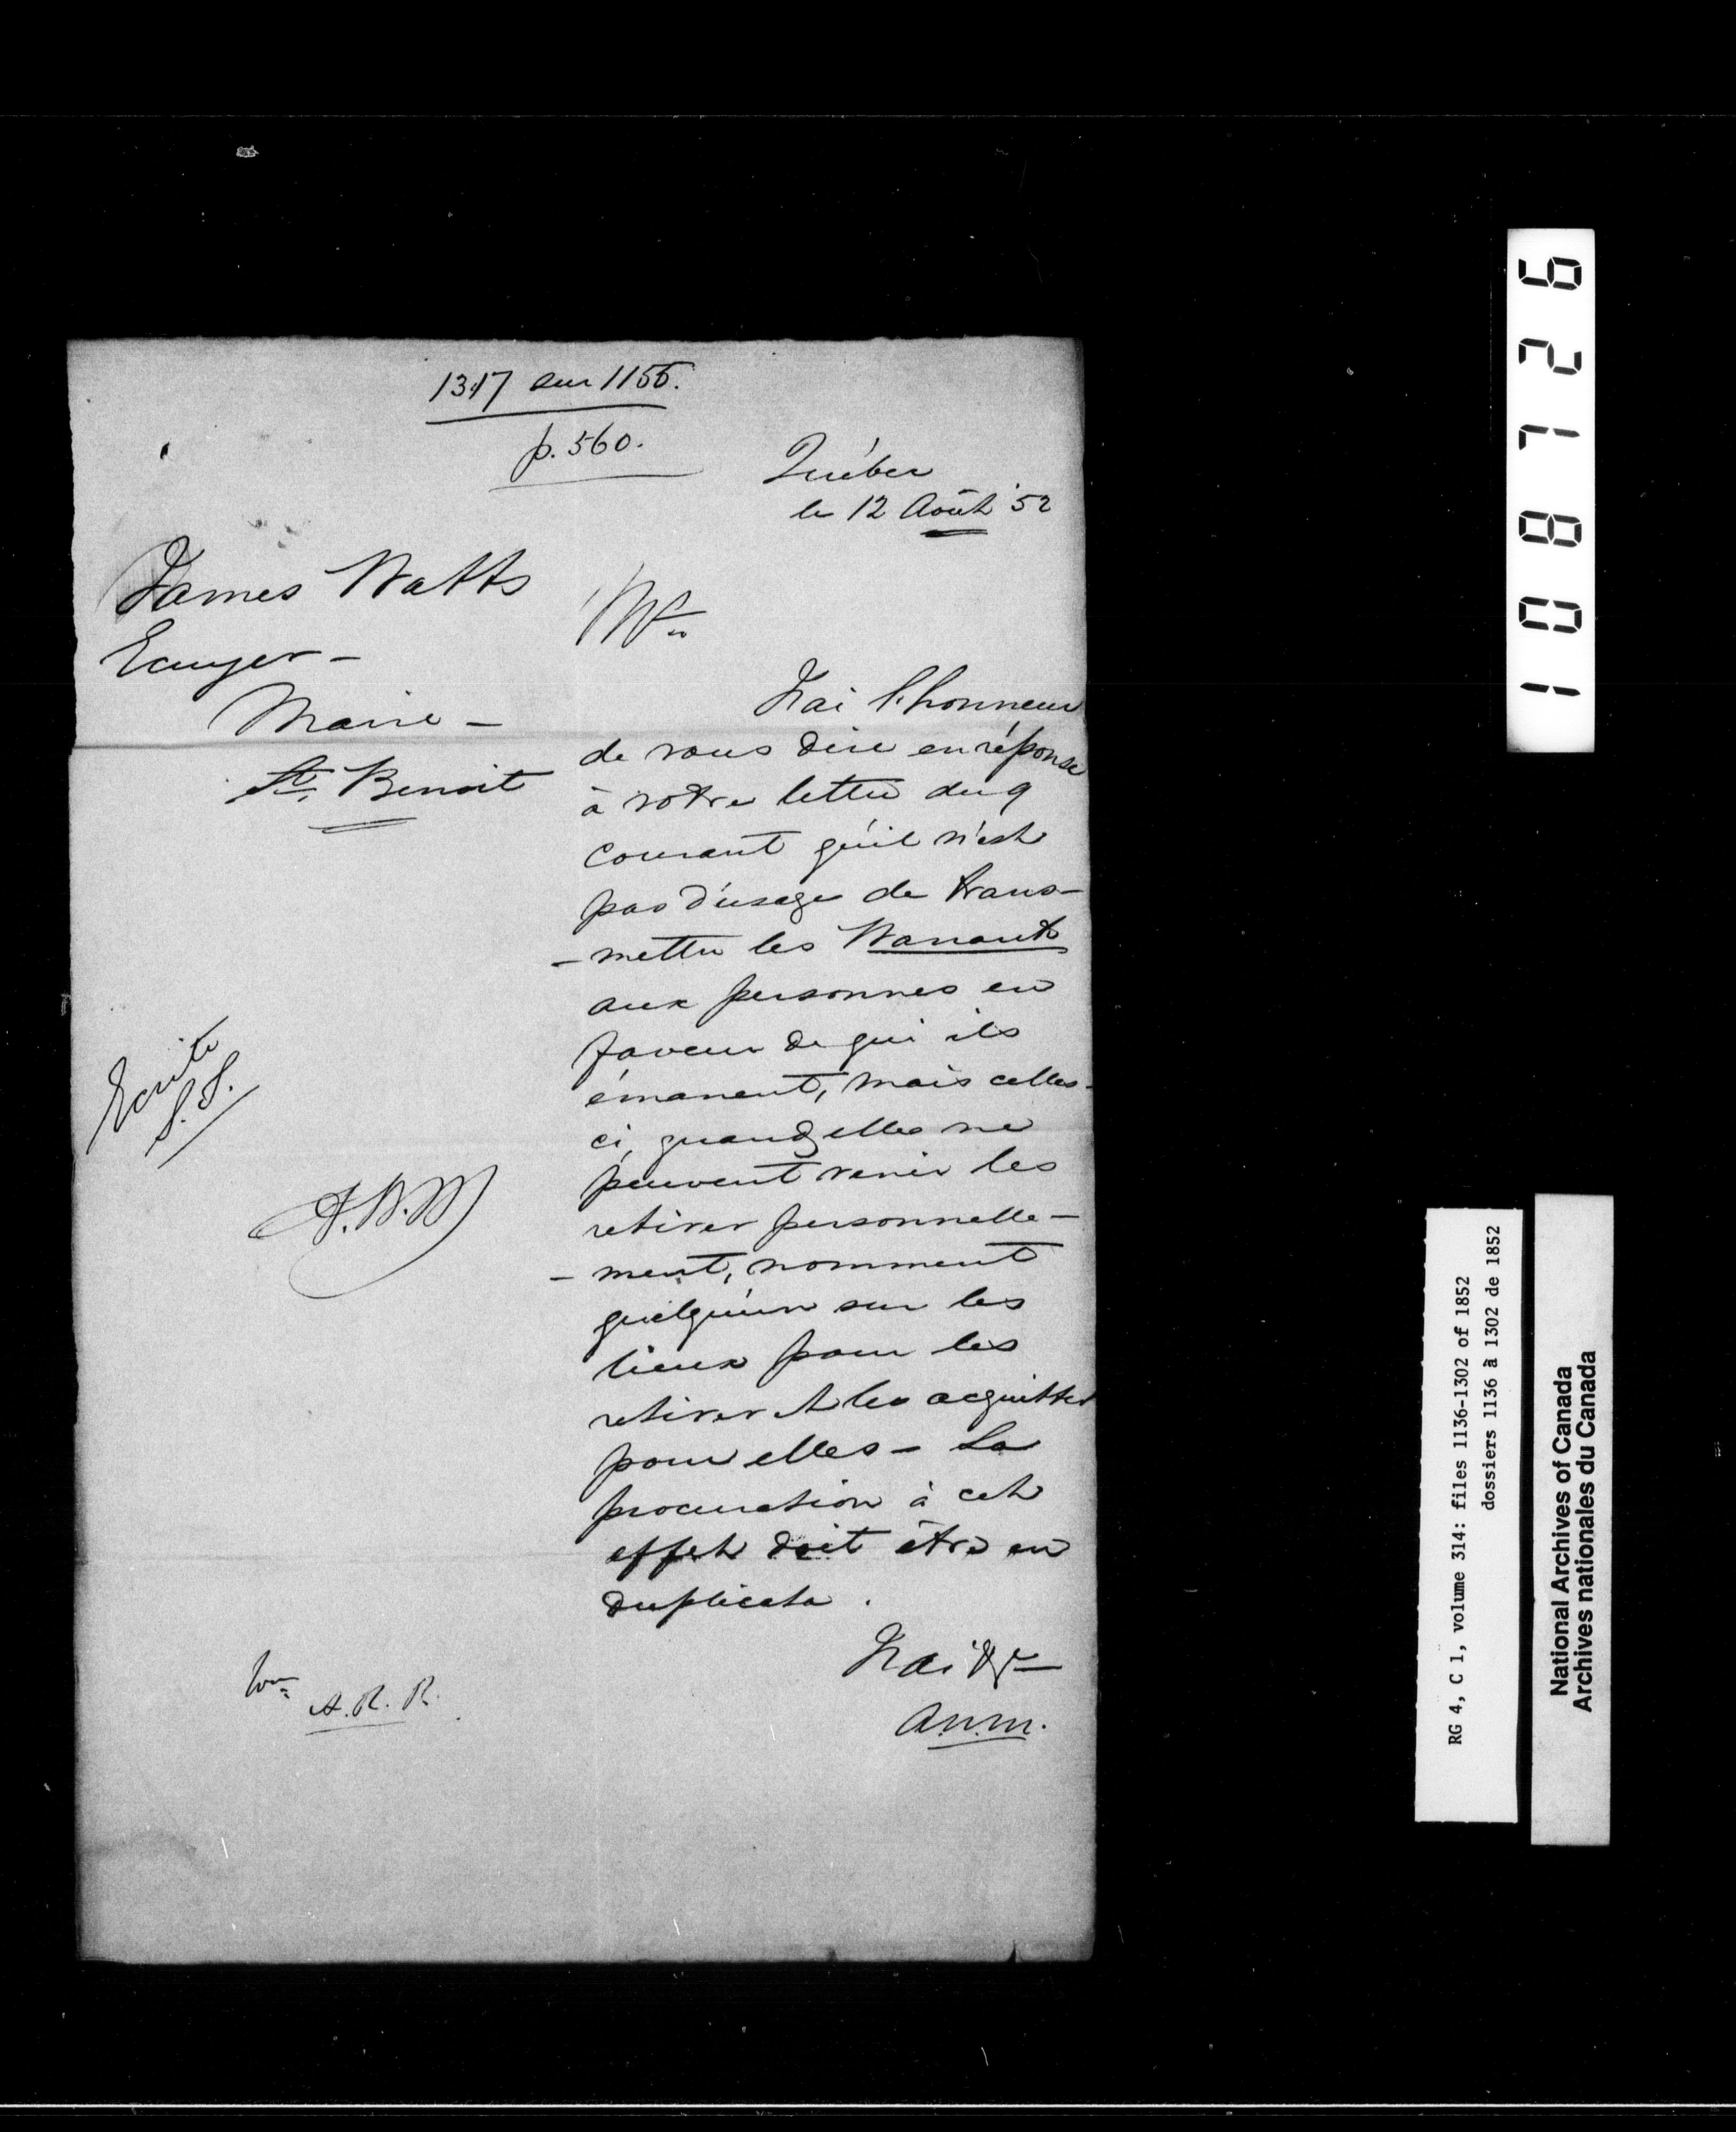 1317 sur 1155.
p. 560.
Québec
le 12 Août '52
James Watts
Ecuyer –
Maire –
St. Benoit
Mr
J'ai l'honneur
de vous dire en réponse
à votre lettre du 9
courant qu'il n'est
pas d'usage de trans-
-mettre les Warrants
aux personnes en
faveur de qui ils
émanent, mais celles-
ci, quand elles ne
peuvent venir les
retirer personnelle-
-ment, nomment
quelqu'un sur les
lieux pour les
retirer et les acquitter
pour elles – La
procuration à cet
effet doit être en
duplicata.
J'ai &c
A.N.M.
Ecrite
S.S.
A. R. R.
108726
RG 4, C 1, volume 314: files 1136-1302 of 1852
dossiers 1136 à 1302 de 1852
National Archives of Canada
Archives nationales du Canada